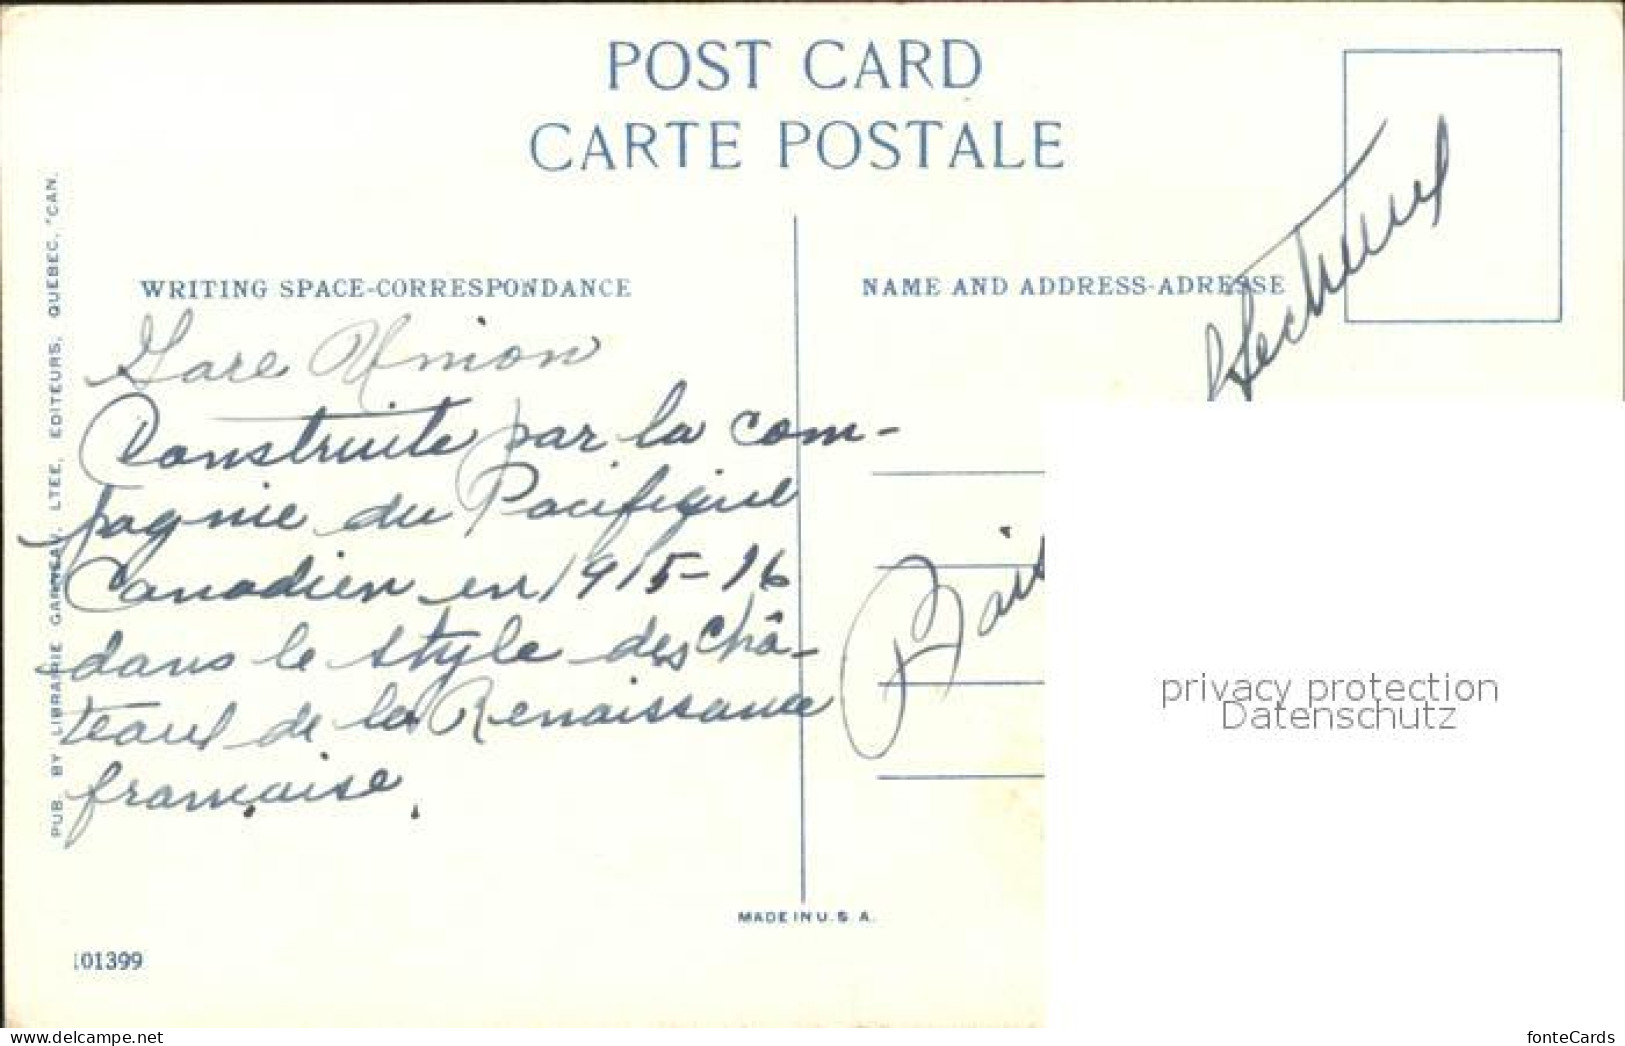 POST CARD
CARTE POSTALE
PUB. BY LIBRAIRIE GARNEAU, LTEE, EDITEURS, QUEBEC, CAN.
WRITING SPACE-CORRESPONDANCE
Gare Union
Construite par la com-
pagnie du Pacifique
Canadien en 1915-16
dans le style des châ-
teaux de la Renaissance
française.
NAME AND ADDRESS-ADRESSE
privacy protection
Datenschutz
MADE IN U.S.A.
101399
www.delcampe.net
fonteCards